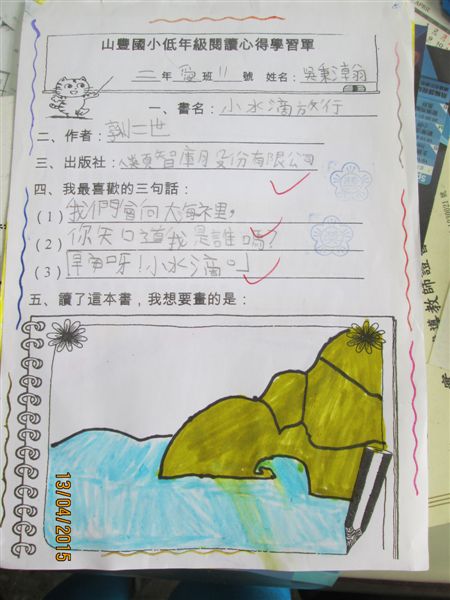 山豐國小低年級閱讀心得學習單
二年 愛 班 11 號 姓名：吳秉翰
一、書名：小水滴旅行
二、作者：
三、出版社：人類智庫股份有限公司
四、我最喜歡的三句話：
(1) 我們會向大海裡，
(2) 你知道我是誰嗎？
(3) 早安呀！小水滴
五、讀了這本書，我想要畫的是：
13/04/2015
APRIL
導教師